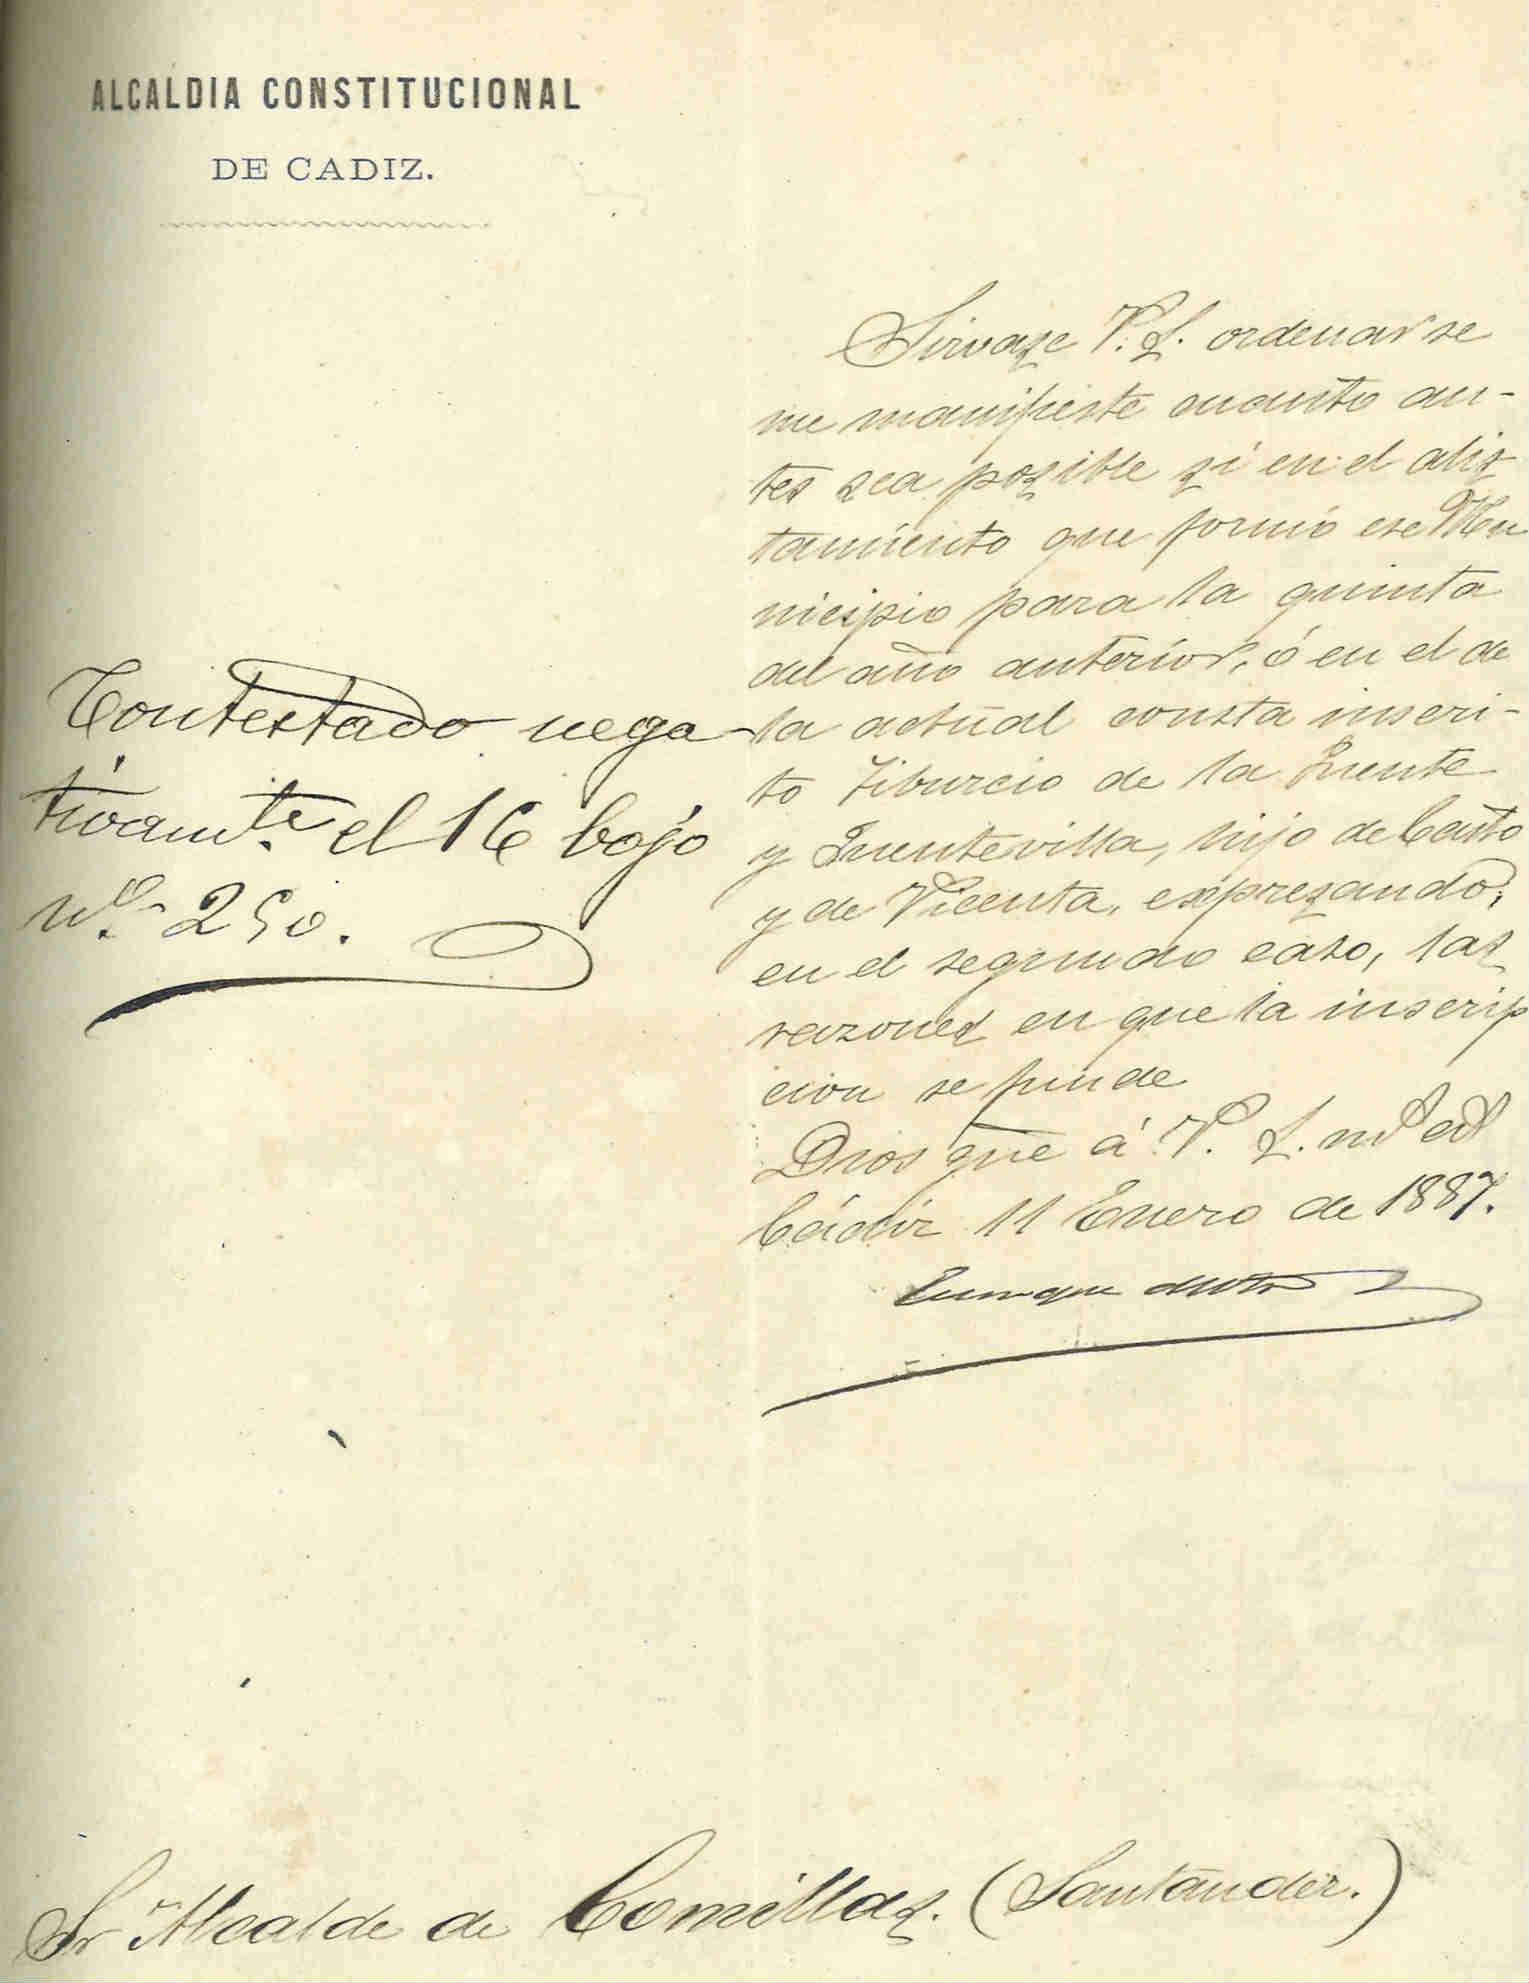 ALCALDIA CONSTITUCIONAL
DE CADIZ.
Sirvase V. S. ordenar se
me manifieste cuanto an-
tes sea posible si en el alis-
tamiento que formó ese Mu
nicipio para la quinta
del año anterior, ó en el de
la actual consta inscri-
to Tiburcio de la Fuente
y Fuentevilla, hijo de Casto
y de Vicenta, expresando,
en el segundo caso, las
razones en que la inscrip
cion se funde
Dios gue á V. S. ms as
Cádiz 11 Enero de 1887.
Enrique
Contestado nega-
tivamte. el 16 bajo
no. 250.
Sr Alcalde de Comillas. (Santander.)